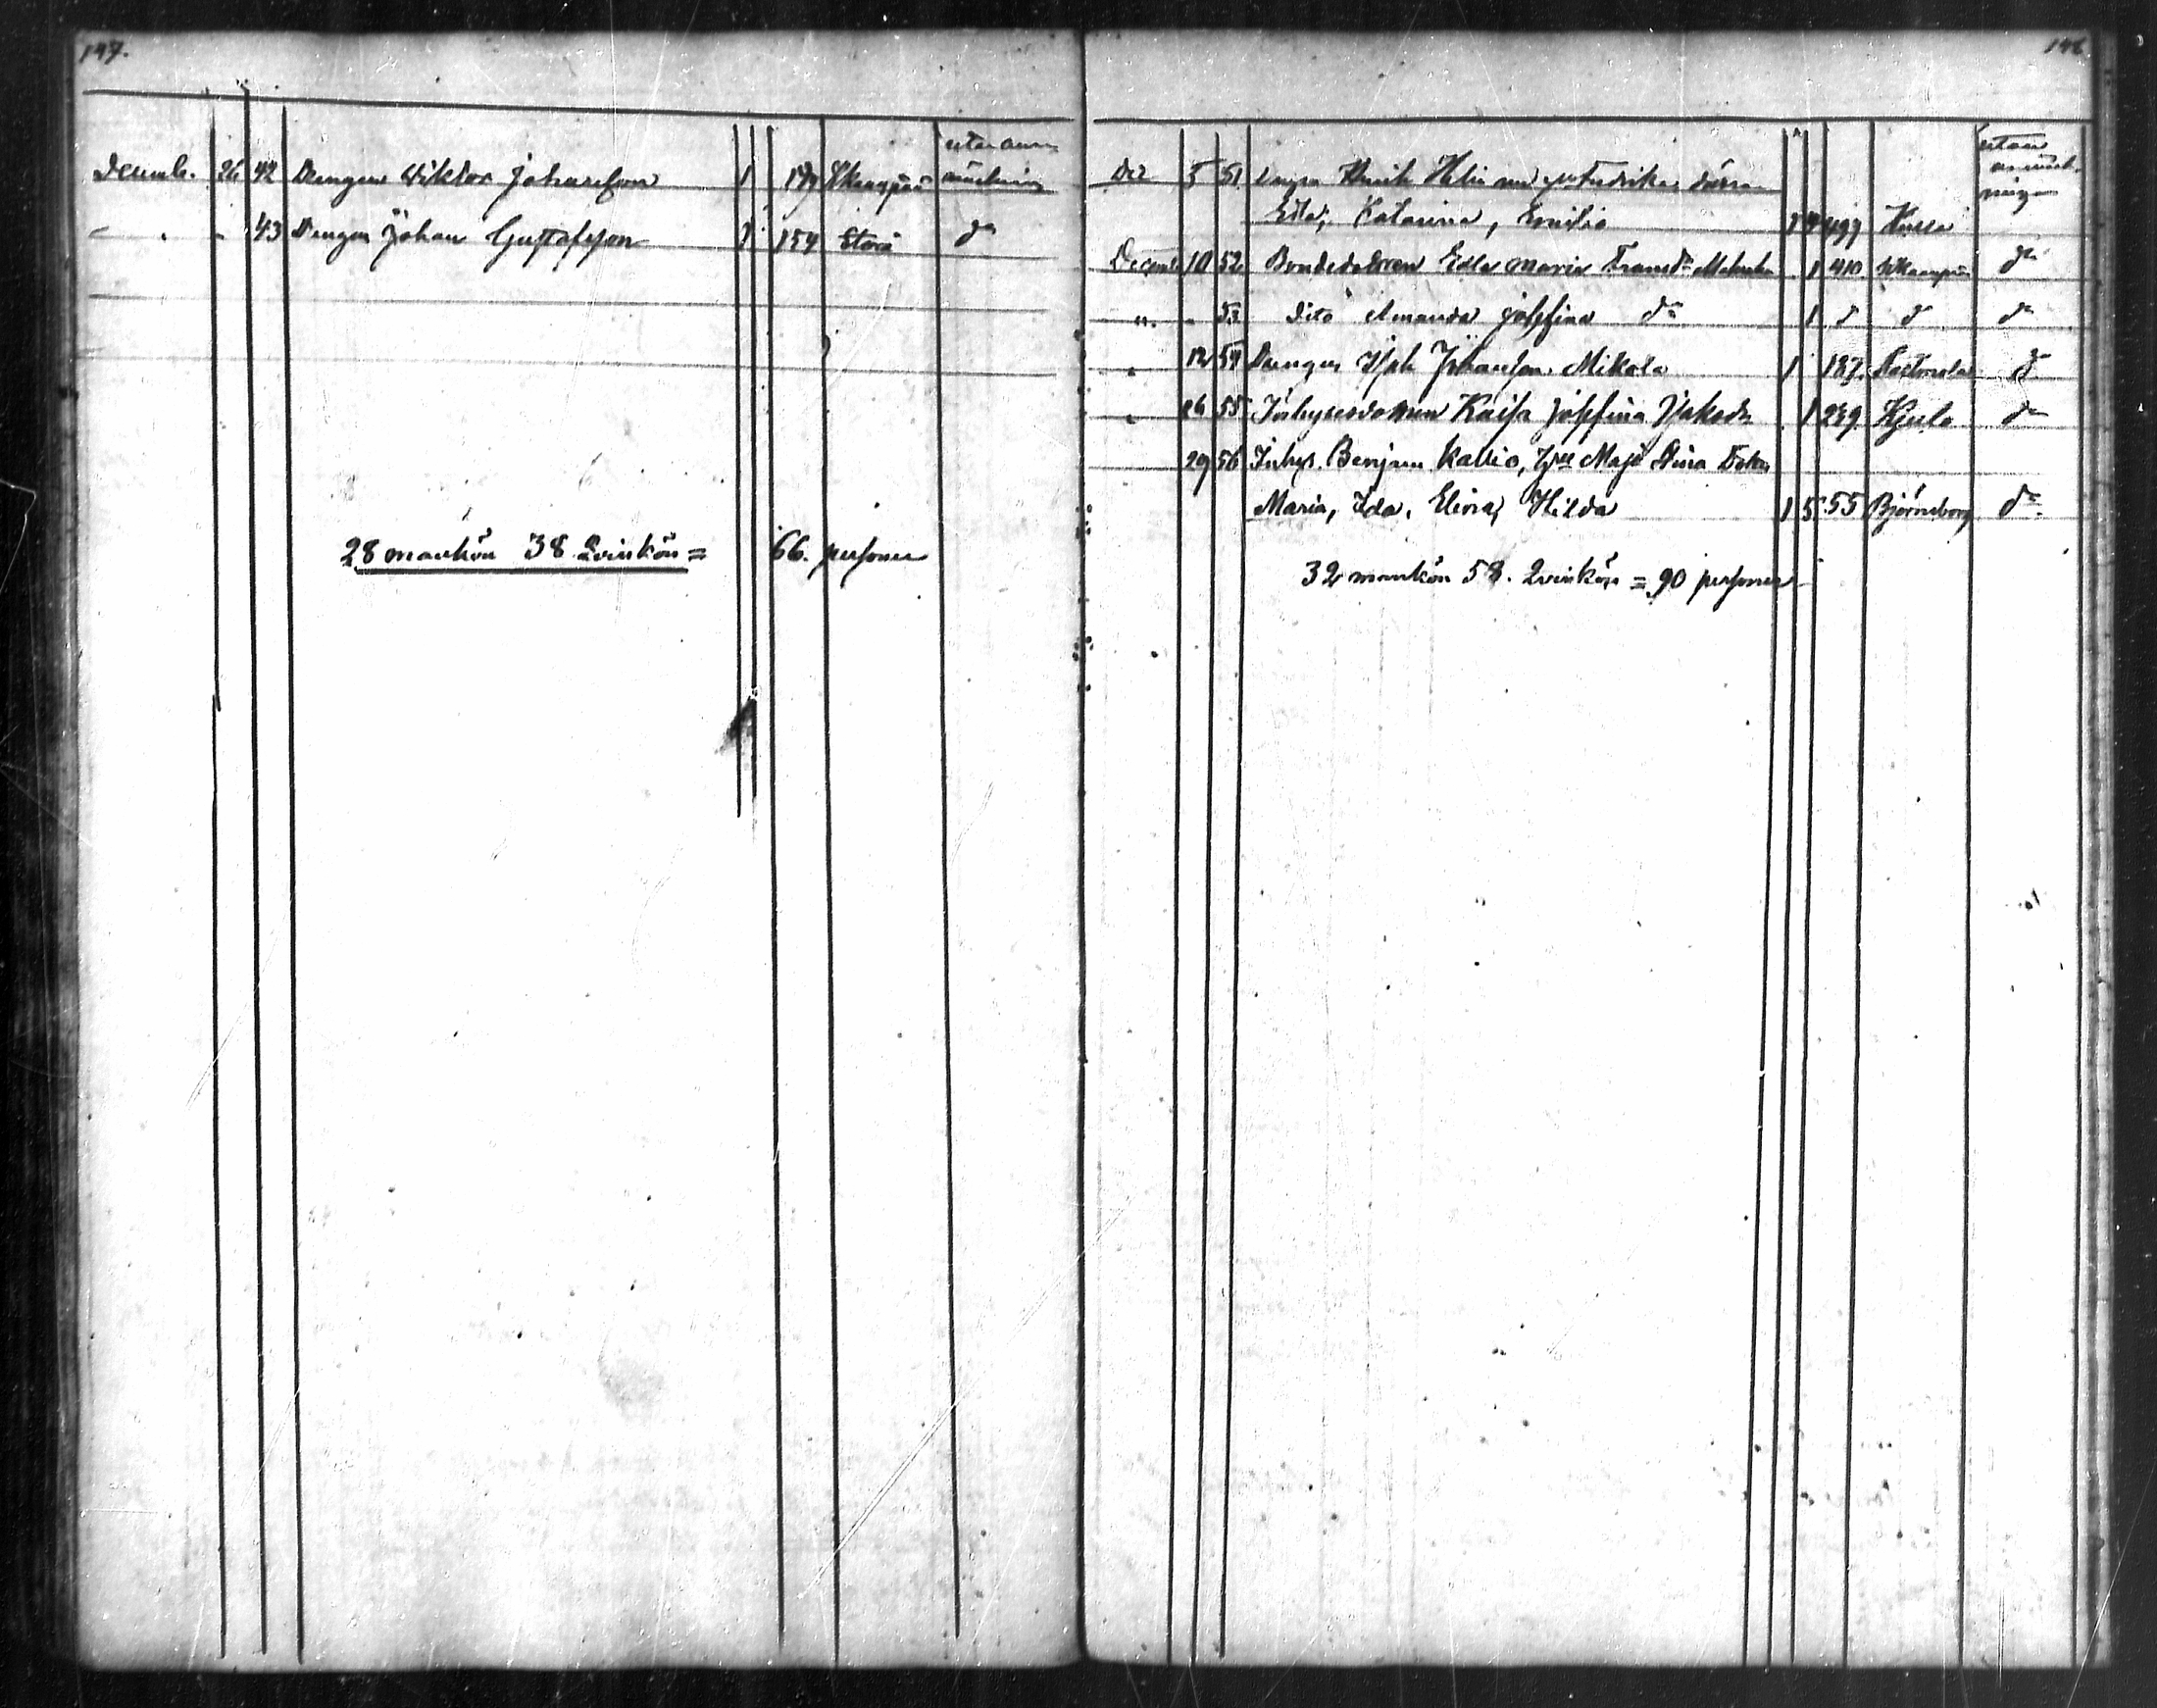 147.
Decemb. 26 42 Drengen Wiktor Johansson 1 179 Ikaapää utan anmärkning
" " 43 Drengen Johan Gustafsson 1 154 Storå do
28 mankön 38 Qvinkön = 66. personer
Dec 5 51 Henrik Helin Fredrika
Edla, Katarina, Emilia 1 4 499 utan anmärkning
Decemb 10 52 Bondedottren Edla Maria Fransdr 1 410 do
" " 53 Dito Amanda Josefina do 1 d d do
" 12 54 Drengen Johansson Mikola 1 187. d
" 26 55 Inhysesdottren Kaisa Josefina 1 239 Kjulo do
29 56 Inhys. Benjam Kallio, Maja Stina
Maria, Ida, Elvira, Hilda 1 5 55 Björneborg do
32 mankön 58. Qvinkön = 90 personer